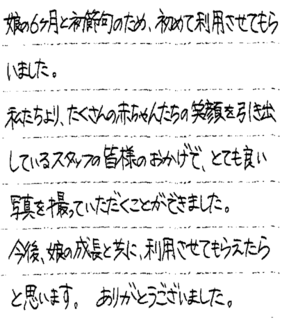 娘の6ヶ月と初節句のため、初めて利用させてもら
いました。
私たちより、たくさんの赤ちゃんたちの笑顔を引き出
しているスタッフの皆様のおかげで、とても良い
写真を撮っていただくことができました。
今後、娘の成長と共に、利用させてもらえたら
と思います。 ありがとうございました。